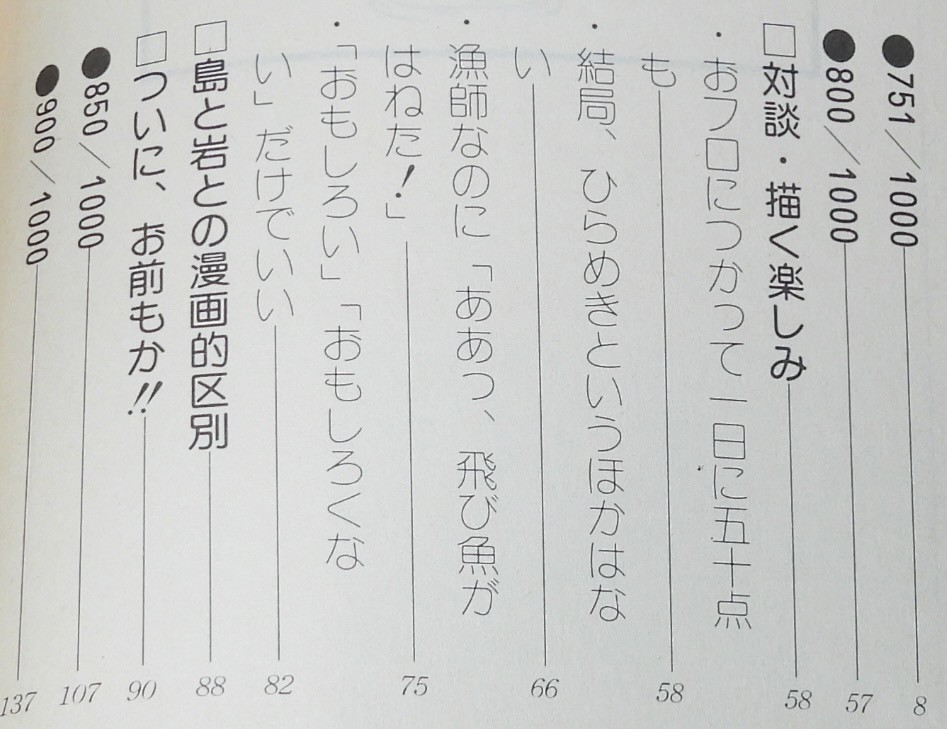 ●751／1000 8
●800／1000 57
□対談・描く楽しみ 58
・おフロにつかって一日に五十点
も 58
・結局、ひらめきというほかはな
い 66
・漁師なのに「ああっ、飛び魚が
はねた！」 75
・「おもしろい」「おもしろくな
い」だけでいい 82
□島と岩との漫画的区別 88
□ついに、お前もか!! 90
●850／1000 107
●900／1000 137